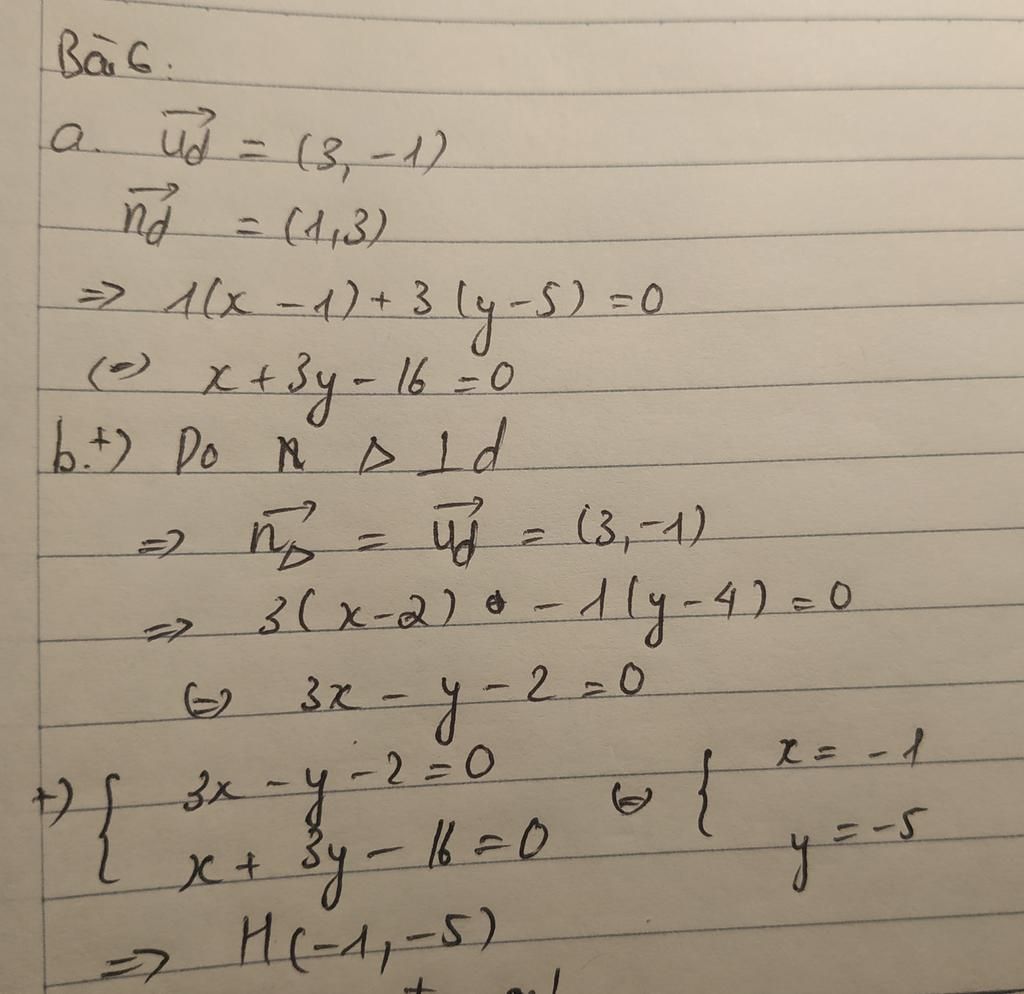 Bài 6:
a. u⃗d = (3, -1)
n⃗d = (1, 3)
=> 1(x - 1) + 3(y - 5) = 0
(=) x + 3y - 16 = 0
b. +) Do Δ ⊥ d
=> n⃗Δ = u⃗d = (3, -1)
=> 3(x - 2) - 1(y - 4) = 0
(=) 3x - y - 2 = 0
+) { 3x - y - 2 = 0 (=) { x = -1
x + 3y - 16 = 0 y = -5
=> H(-1, -5)